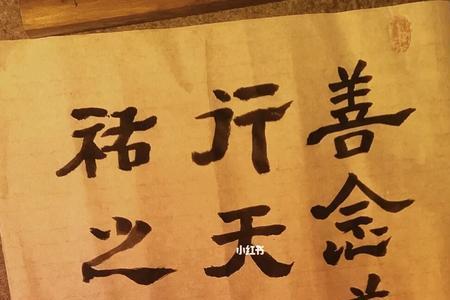 善念
行天
祐之
小红书